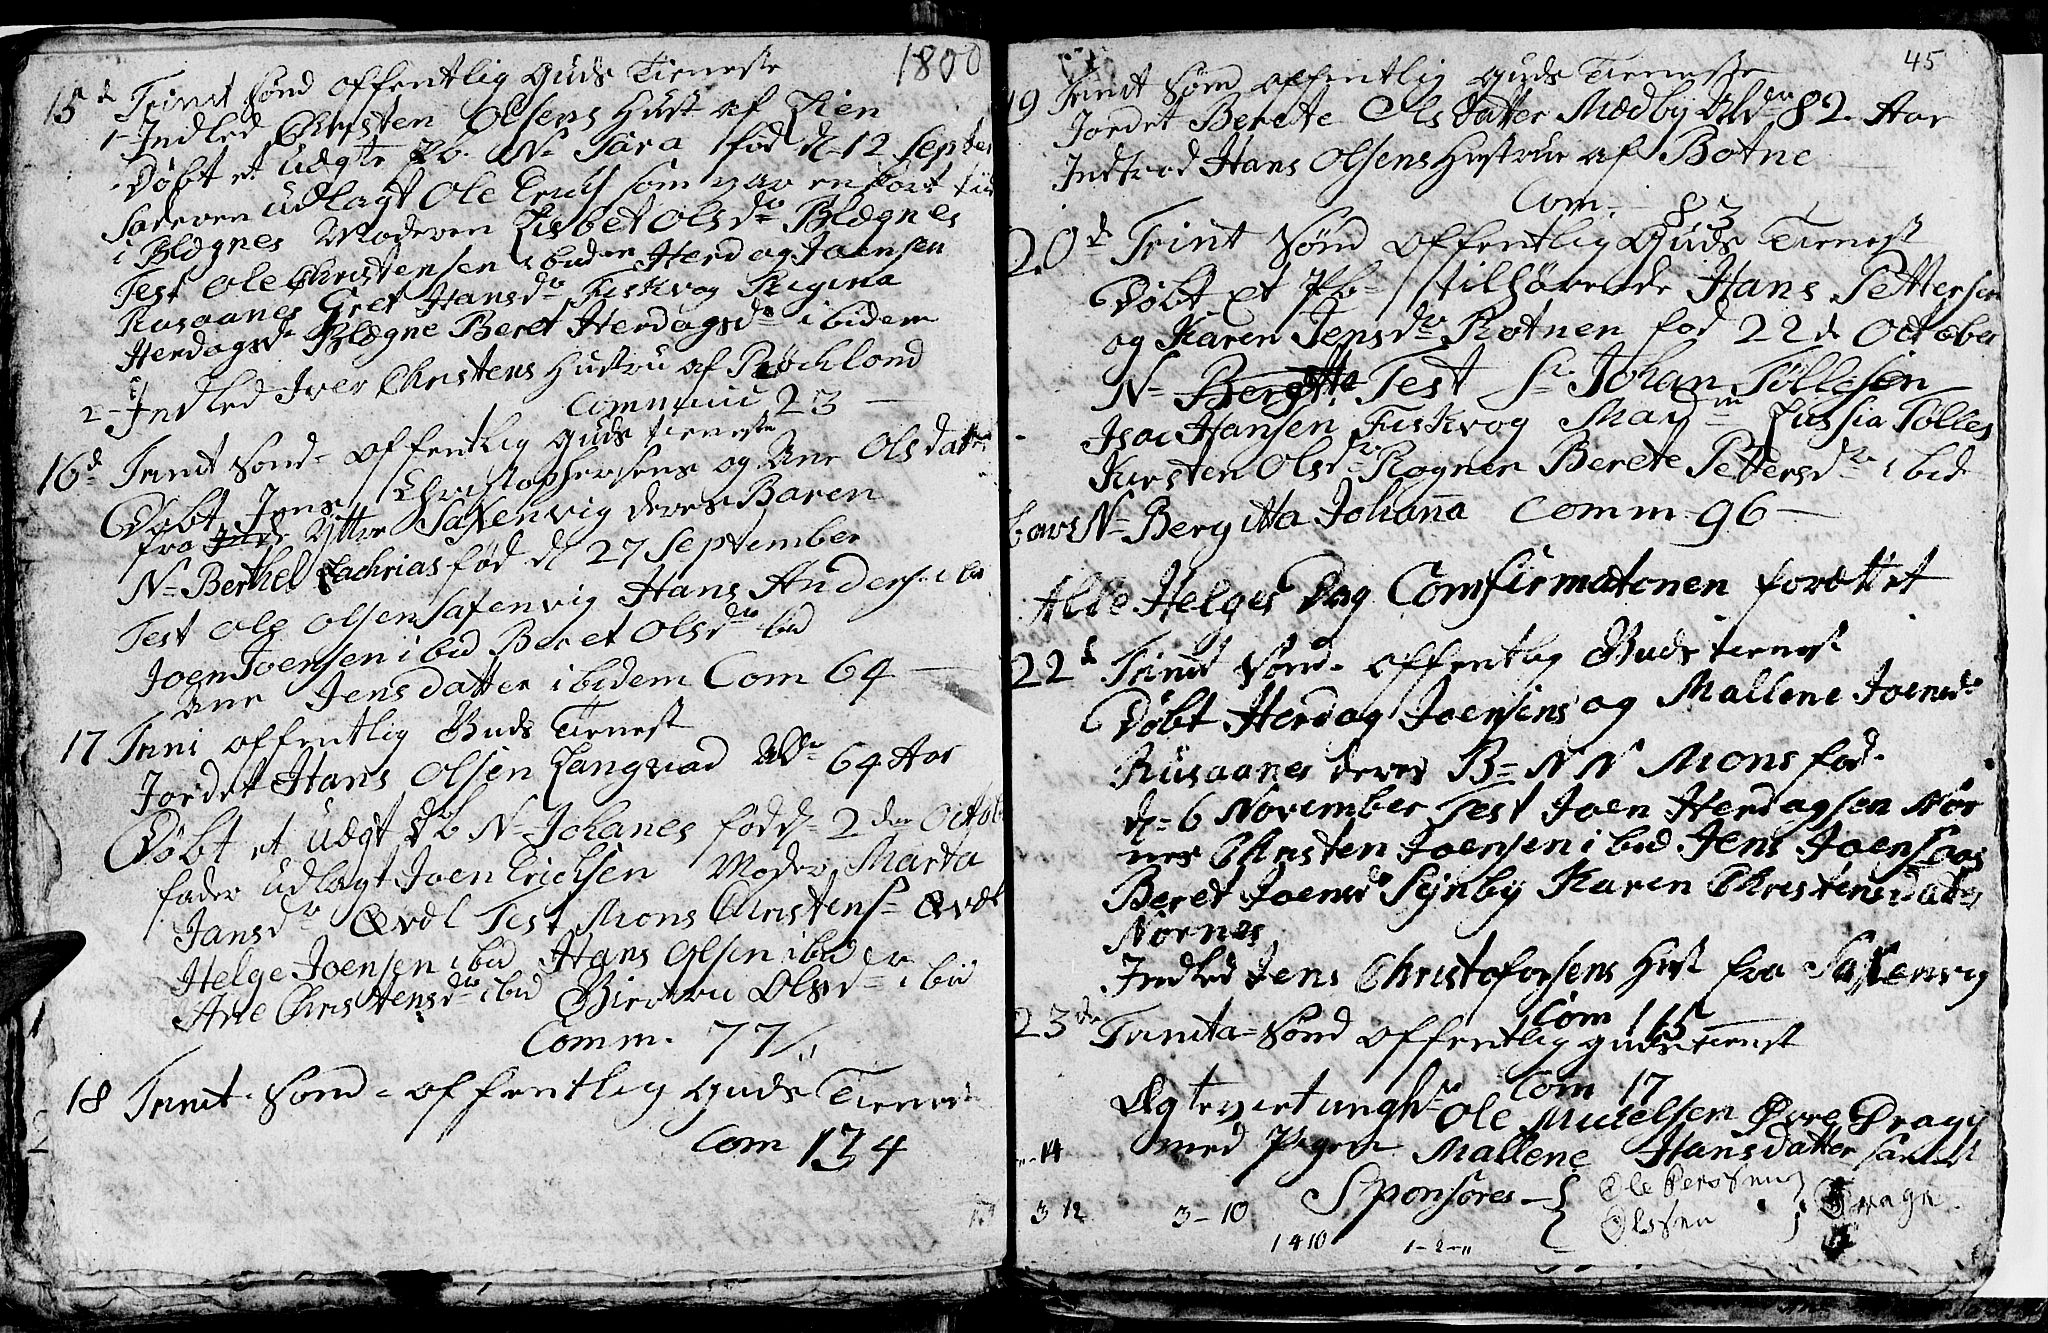 1800
15d Trinit Sønd offentlig Guds Tieneste
1 - Indled Christen Olsens Hust af Lien
Døbt et uægte Pb. N= Sara fød d- 12 Septer
faderen udlagt Ole Erichs som var en kort tid
i Blegnes Moderen Lisbet Olsdr Blegnes
Test Ole Christensen ibidem Herdag Joensen
Rusaanes Gret Hansdr Fiskvog Regina
Herdagsdr Blægne Beret Herdagsdr ibidem
2 - Indled Iver Christens Hustru af Røchlond
Commun 23 -
16d Trinit Sond= offentlig Guds tieneste
Døbt Jens Christophersens og Ane Olsdatter
fra Ytter Saxenvig deres Baren
N= Berthel Zachrias fød d 27 September
Test Ole Olsen Saxenvig Hans Anders= ibd
Joen Joensen ibid Beret Olsdr ibid
Ane Jensdatter ibidem Com 64 -
17 Trini offentlig Guds Tienest
Jordet Hans Olsen Langvad Aldr 64 Aar
Døbt et uægt Db N= Johanes fød d= 2den Octob
fader udlagt Joen Erichsen Moder Marta
Jansdr Qvæl Test Mons Christens= Qvæl
Helge Joensen ibid Hans Olsen ibid
Ane Christensdr ibid Olsdr ibid
Comm. 77/.
18 Trinit- Sond= offentlig Guds Tienest
Com 134
45
19 Trinit Sønd offentlig Guds Tieneste
Jordet Berete Olsdatter Medby Aldr 82 Aar
Indtrod Hans Olsens Hustrue af Botne
Com. - 83
20d Trinit Sønd offentlig Guds Tienest
Døbt et Pb= tilhørende Hans Pettersen
og Karen Jensdr Rotnen fød 22d October
N= Test Sr Johan Töllesen
Isac Hansen Fiskvog Madm Zussia Tölles
Kirsten Olsdr Rognen Berete Pettersdr ibid
bars N= Bergitta Johanna Comm - 96 -
Alle Helges Dag Comfirmatonen forættet
22d Trinit Sønd- offentlig Guds tienest
Døbt Herdag Joensens og Mallene Joensdr
Rusaanes deres B= N N Mons fød-
d= 6 November Test Joen Herdagsen Nør
nes Christen Joensen ibid Jens Joens
Beret Joensdr Sejnby Karen Christensdatter
Nørnes
Indled Jens Christofersens Hust fra Saxenvig
Com 115
23de Trinita= Sønd offentlig gudstienest
Com 17
Ægtevied unghr Ole Mickelsen Øvre Dragg
med Pigen Mallene Hansdatter samst
Sponsores - { Ole Perssen } Drage
{ Olssen }
14
3 12 3 - 10
1410 1-2-"